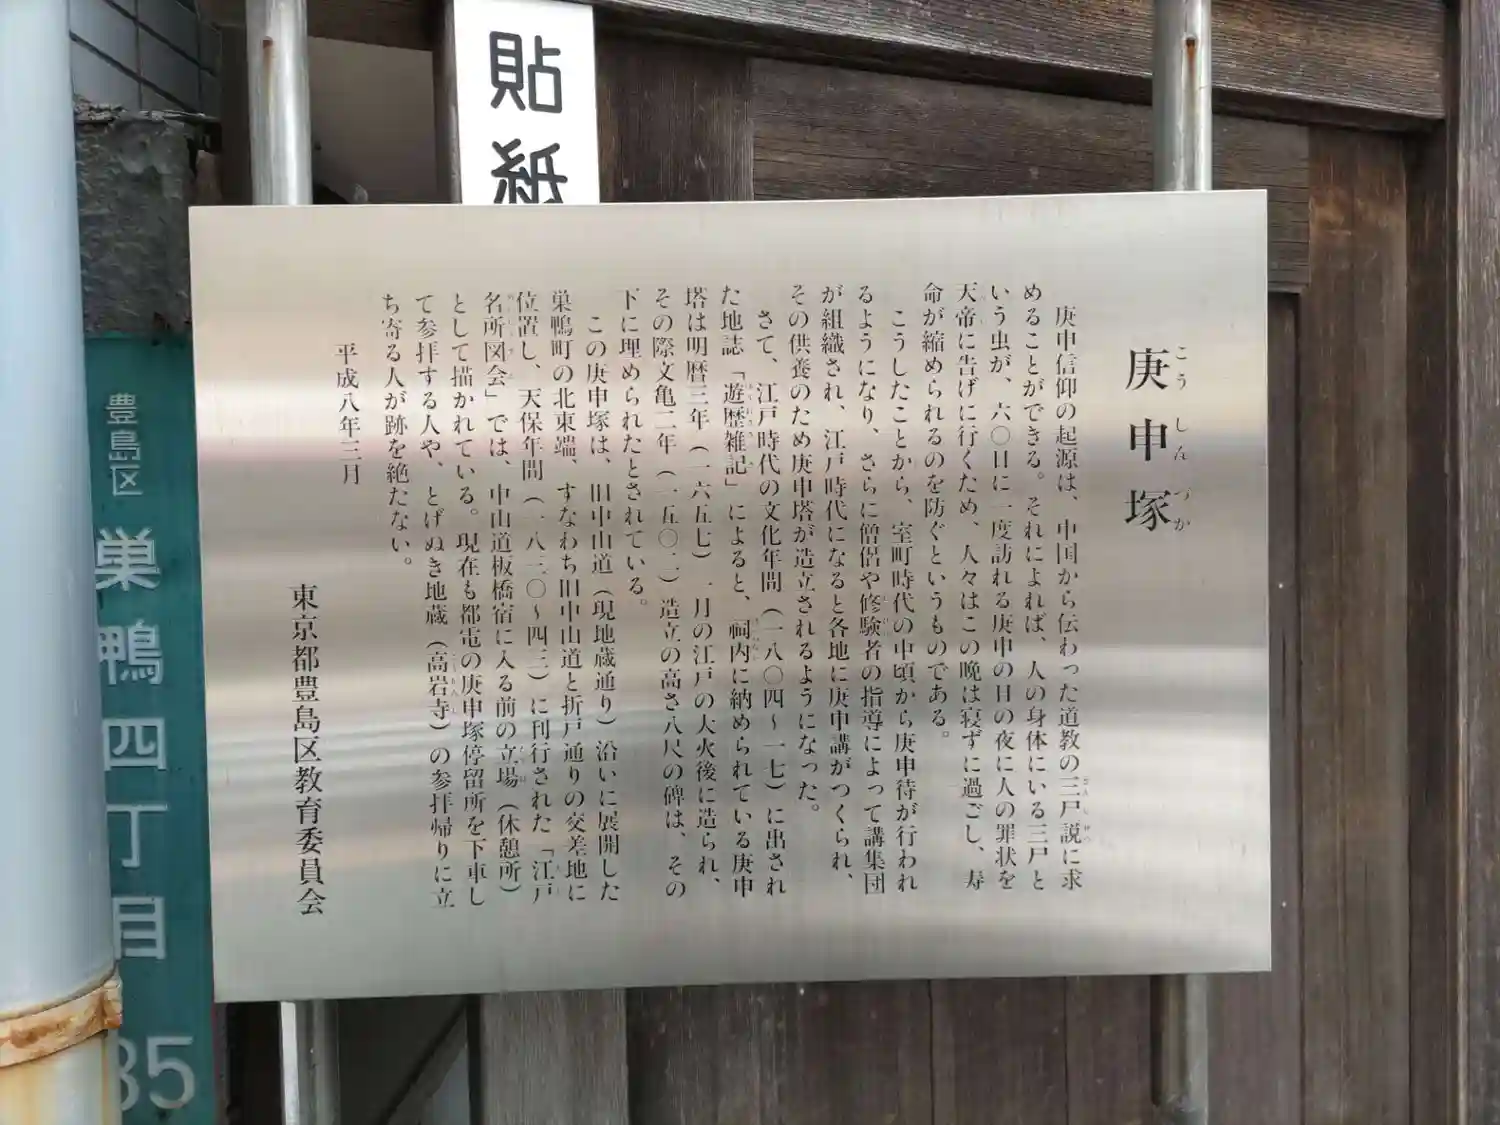 庚申塚
こうしんづか
庚申信仰の起源は、中国から伝わった道教の三尸説に求
めることができる。それによれば、人の身体にいる三尸と
いう虫が、六〇日に一度訪れる庚申の日の夜に人の罪状を
天帝に告げに行くため、人々はこの晩は寝ずに過ごし、寿
命が縮められるのを防ぐというものである。
こうしたことから、室町時代の中頃から庚申待が行われ
るようになり、さらに僧侶や修験者の指導によって講集団
が組織され、江戸時代になると各地に庚申講がつくられ、
その供養のため庚申塔が造立されるようになった。
さて、江戸時代の文化年間(一八〇四〜一七)に出され
た地誌「遊歴雑記」によると、祠内に納められている庚申
塔は明暦三年(一六五七)一月の江戸の大火後に造られ、
その際文亀二年(一五〇二)造立の高さ八尺の碑は、その
下に埋められたとされている。
この庚申塚は、旧中山道(現地蔵通り)沿いに展開した
巣鴨町の北東端、すなわち旧中山道と折戸通りの交差地に
位置し、天保年間(一八三〇〜四三)に刊行された「江戸
名所図会」では、中山道板橋宿に入る前の立場(休憩所)
として描かれている。現在も都電の庚申塚停留所を下車し
て参拝する人や、とげぬき地蔵(高岩寺)の参拝帰りに立
ち寄る人が跡を絶たない。
平成八年三月
東京都豊島区教育委員会
貼紙
豊島区
巣鴨四丁目
35